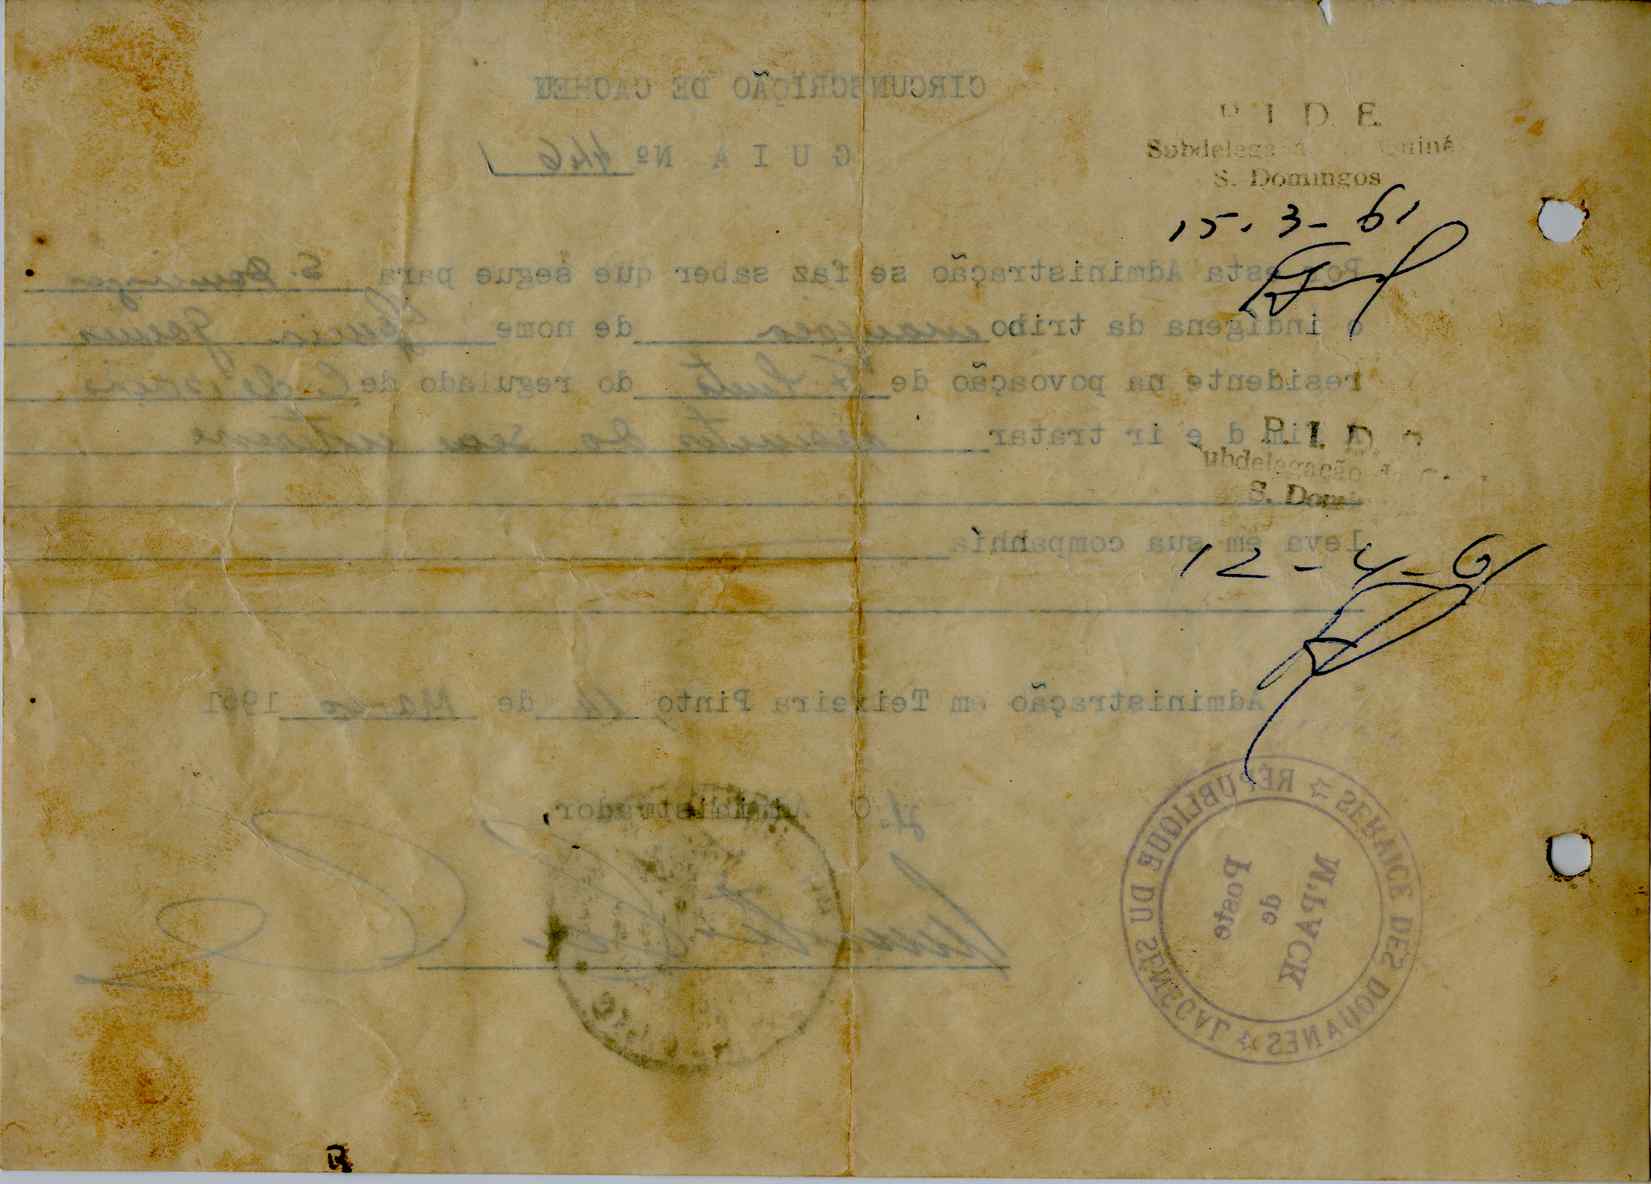 CIRCUNSCRIÇÃO DE CACHEU
GUIA Nº 446
P. I. D. E.
Subdelegação Guiné
S. Domingos
15-3-61
Por esta Administração se faz saber que segue para S. Domingos
o indígena da tribo de nome
residente na povoação de do regulado de
a fim d e ir tratar assuntos do seu interesse
P. I. D.
Subdelegação
S. Dom
leva em sua companhia
12-4-61
Administração em Teixeira Pinto, 14 de Março 1961
O Administrador,
RÉPUBLIQUE DU SENEGAL ☆ SERVICE DES DOUANES ☆
Poste
de
M'PACK